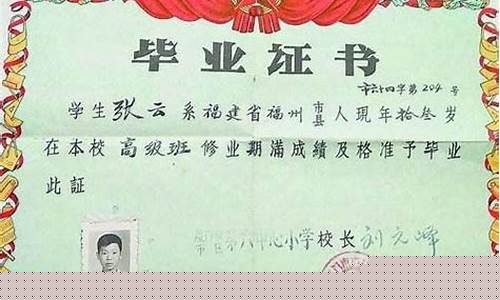 毕业证书
市六十四字第204号
学生张云系福建省福州市县人现年拾叁岁
在本校高级班修业期满成绩及格准予毕业
此証
第六中心小学校长刘元峰